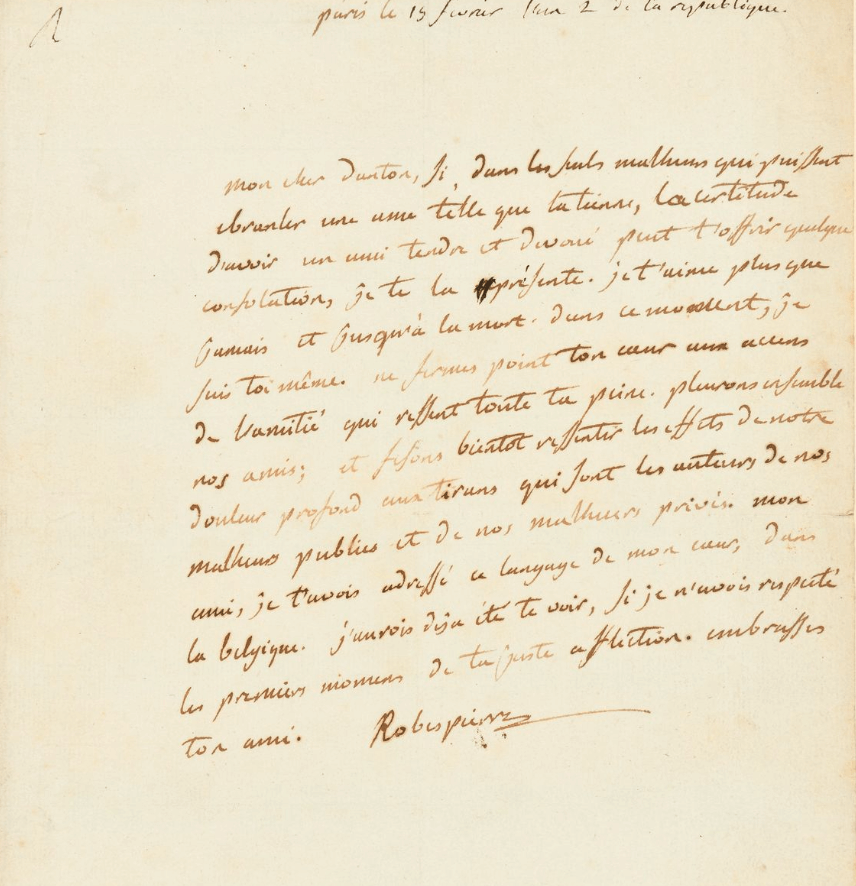 paris le 15 fevrier l'an 2 de la republique.
mon cher Danton, si, dans les seuls malheurs qui puissent
ebranler une ame telle que la tienne, la certitude
d'avoir un ami tendre et devoué peut t'offrir quelque
consolation, je te la présente. je t'aime plus que
jamais et jusqu'à la mort. dans ce moment, je
suis toi même. ne fermes point ton cœur aux accens
de l'amitié qui ressent toute ta peine. pleurons ensemble
nos amis; et fesons bientot ressentir les effets de notre
douleur profond aux tirans qui sont les auteurs de nos
malheurs publics et de nos malheurs privés. mon
ami, je t'avois adressé ce langage de mon cœur, dans
la belgique. j'aurois déja été te voir, si je n'avois respecté
les premiers momens de ta juste affliction. embrasses
ton ami. Robespierre